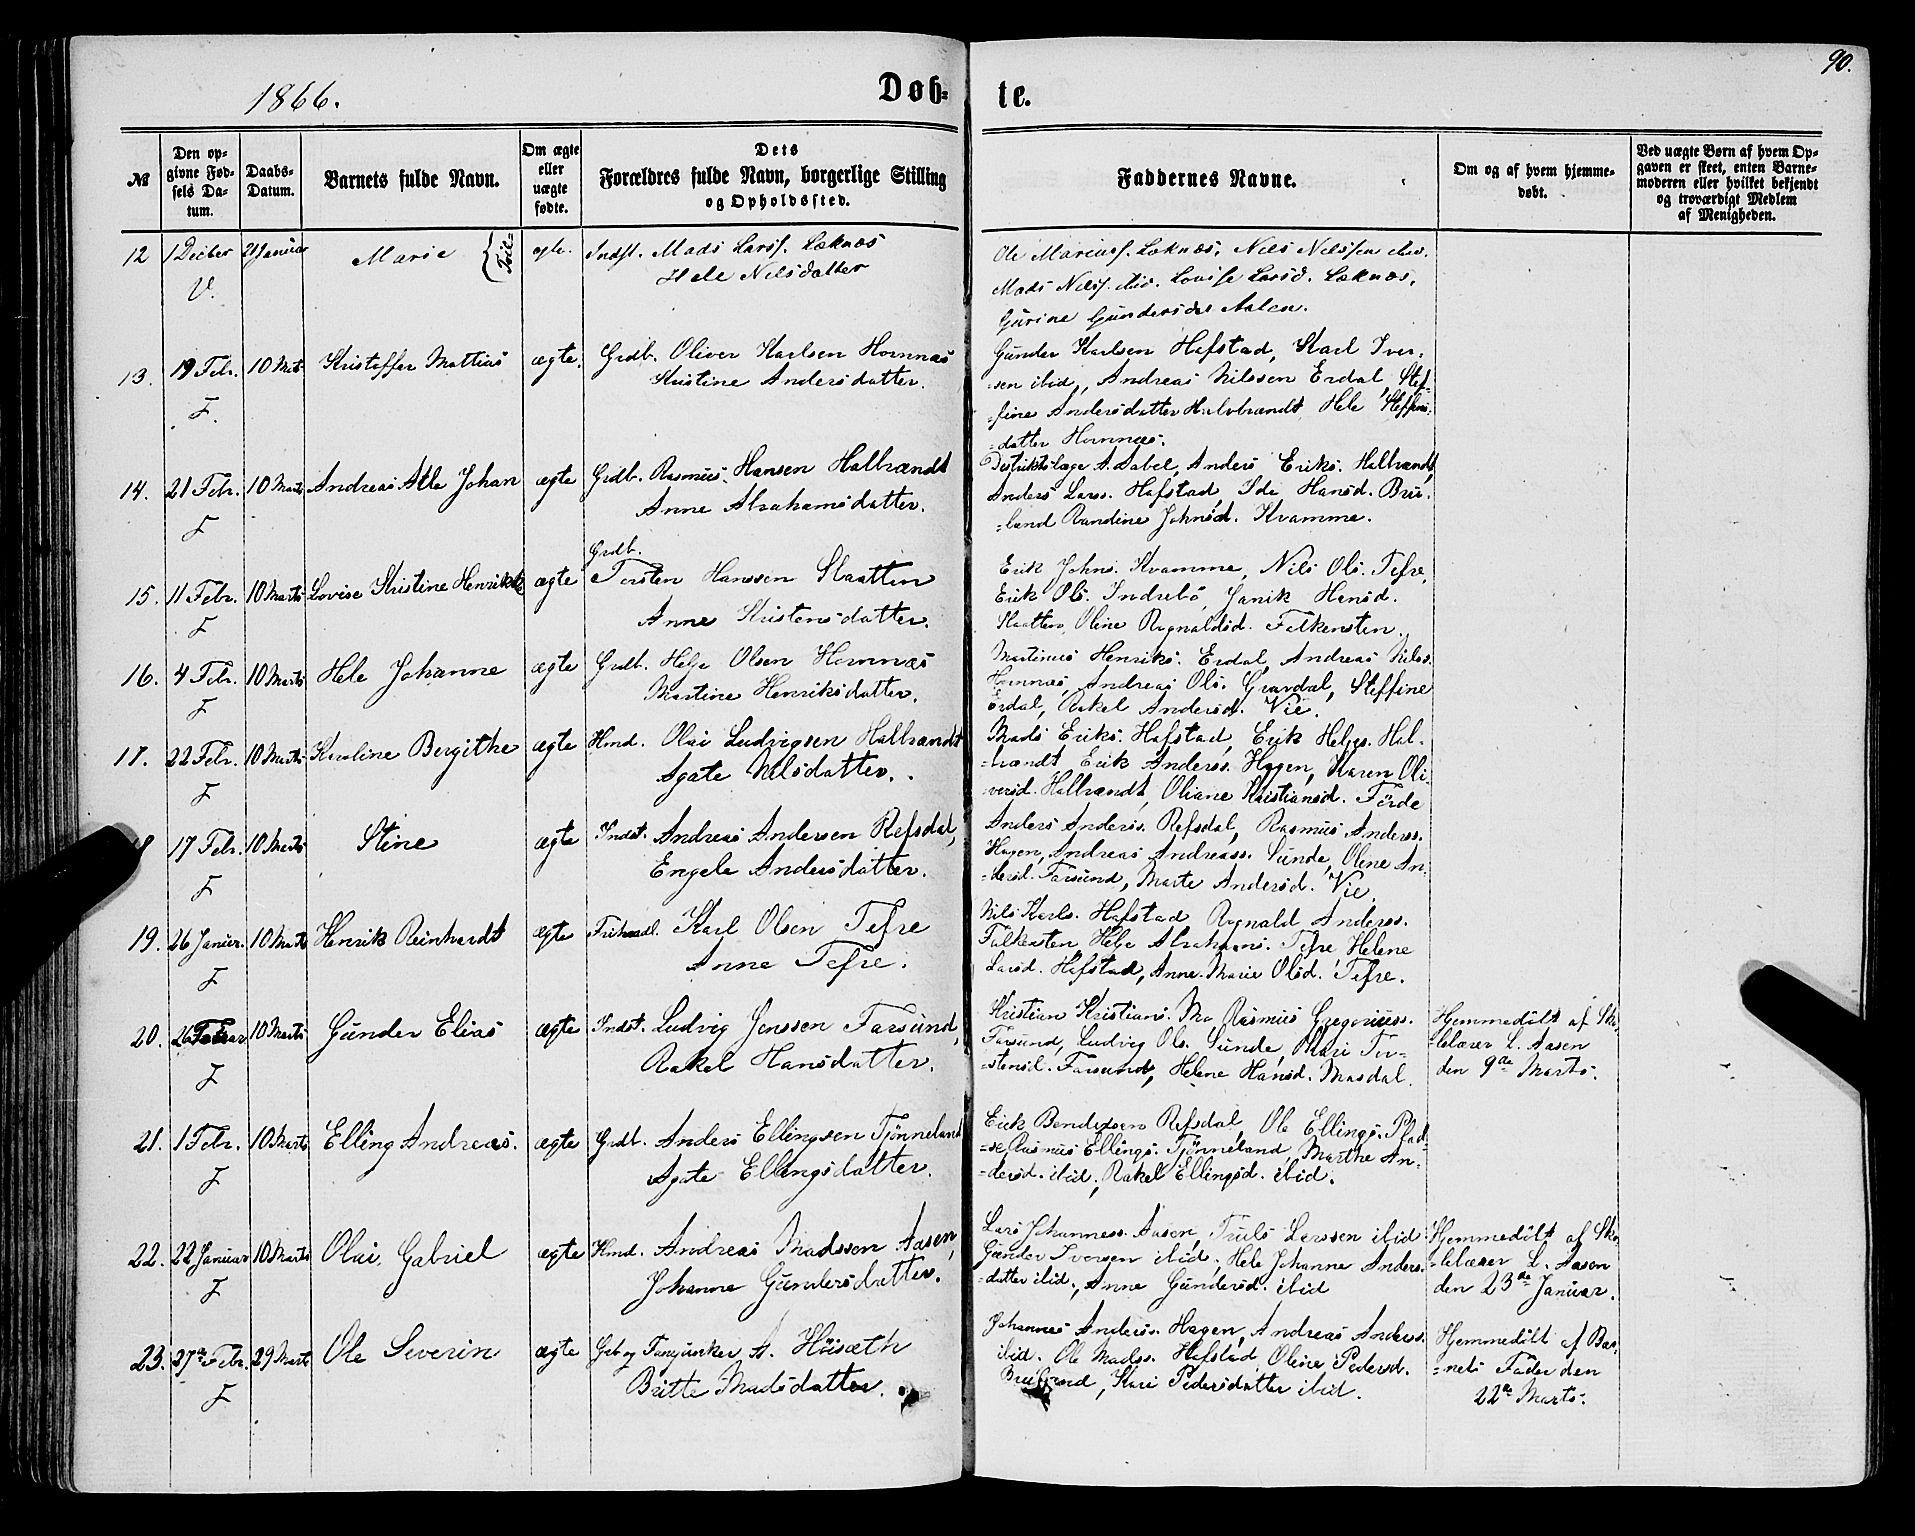 90.
1866.
Døb-
te.
№
Den op-
givne Fød-
sels Da-
tum.
Daabs-
Datum.
Barnets fulde Navn.
Om ægte
eller
uægte
fødte.
Dets
Forældres fulde Navn, borgerlige Stilling
og Opholdssted.
Faddernes Navne.
Om og af hvem hjemme-
døbt.
Ved uægte Børn af hvem Op-
gaven er skeet, enten Barne-
moderen eller hvilket bekjendt
og troværdigt Medlem
af Menigheden.
12 1 Decber 21 Januar Marie ægte. Indst. Mads Larsf. Løknæs
V. Hele Nilsdatter
Ole Mariusf. Løknæs, Nils Nilssen ibid.
Mads Nilsf. ibid. Lovise Larsd. Løknæs,
Gurine Gundersdtr Aalen.
13. 19 Febr. 10 Mrts Kristoffer Mattias ægte. Grdb. Oliver Karlsen Hornnæs
F. Kristine Andersdatter.
Gunder Karlsen Hafstad, Karl Iver-
-sen ibid, Andreas Nilssen Erdal, Stef-
-fine Andersdatter Halbrandt, Hele Steffens-
-datter Hornnæs.
14. 21 Febr. 10 Marts Andreas Atle Johan ægte Grdb. Rasmus Hansen Halbrændt
F Anne Abrahamsdatter.
Distriktslæge A. Aabel, Anders Eriks. Halbrændt,
Anders Larss. Hafstad, Ida Hansd. Bru-
-land Randine Johnsd. Kvamme.
Grdb.
15. 11 Febr. 10 Marts Lovise Kristine Henrikke ægte Torsten Hanssen Slaatten
F Anne Kristensdatter.
Erik Johns. Kvamme, Nils Ols. Tefre,
Erik Ols. Indrebö, Janik Hansd.
Slaatten, Oline Ragnaldsd. Falkensten.
16. 4 Febr. 10 Marts Hele Johanne ægte Grdb. Helje Olsen Hornnæs
F Martine Henriksdatter.
Martinus Henriks. Erdal, Andreas Nilss.
Hornnæs, Andreas Ols. Grovdal, Steffine
Erdal, Rakel Andersd. Vie.
17. 22 Febr. 10 Marts Karoline Bergithe ægte Hmd. Olai Ludvigsen Halbrændt
F Agate Nilsdatter.
Mads Eriks. Hafstad, Erik Heljes. Hal-
-brændt, Erik Anderss. Hagen, Karen Oli-
-versd. Halbrændt, Oliane Kristiansd. Förde
17 Febr. 10 Marts Stine ægte Indst. Andreas Andersen Refsdal,
F Engele Andersdatter.
Anders Anderss. Refsdal, Rasmus Anderss.
Hagen, Andreas Andreass. Sunde, Oline An-
-dersd. Farsund, Marte Andersd. Vie.
19. 26 Januar. 10 Marts Henrik Reinhardt ægte Frihandl. Karl Olsen Tefre
F Anne Tefre.
Nils Karls. Hafstad Ragnald Anderss.
Falkensten, Helje Abrahams. Tefre, Helene
Larsd. Hafstad, Anne Marie Olsd. Tefre.
20. 26 10 Marts Gunder Elias ægte Indst. Ludvig Jenssen Farsund,
F Rakel Hansdatter.
Kristian Kristians. Mo, Rasmus Gregoriuss.
Farsund, Ludvig Ols. Sunde, Mari Tor-
-stensd. Farsund, Helene Hansd. Masdal.
Hjemmedöbt af Sko-
-lelærer L. Aasen
den 9de Marts.
21. 1 Febr. 10 Marts Elling Andreas. ægte Grdb. Anders Ellingsen Tjönneland
F Agate Ellingsdatter.
Erik Bendixsen Refsdal, Ole Ellings. Plad-
-se, Rasmus Ellings. Tjönneland, Marthe An-
-dersd. ibid, Rakel Ellingsd. ibid.
22. 22 Januar 10 Marts Olai Gabriel ægte Hmd. Andreas Madssen Aasen,
F Johanne Gundersdatter.
Lars Johanness. Aasen, Truls Larssen ibid
Gunder Iversen ibid, Hele Johanne Anders-
-datter ibid, Anne Gundersd. ibid
Hjemmedöbt af Sko-
-lelærer L. Aasen
den 23de Januar.
23. 27de Febr. 29 Marts Ole Severin ægte Grb og Fanejunker A. Höisæth
F Britte Madsdatter.
Johannes Anderss. Hagen, Andreas Anderss.
ibid. Ole Madss. Hafstad, Oline Pedersd.
Kari Pedersdatter ibid.
Hjemmedöbt af Bar-
-nets Fader den
22de Marts.